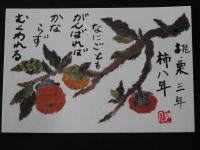 桃栗三年
柿八年
なにごとも
がんばれば
かな
らず
むくわれる